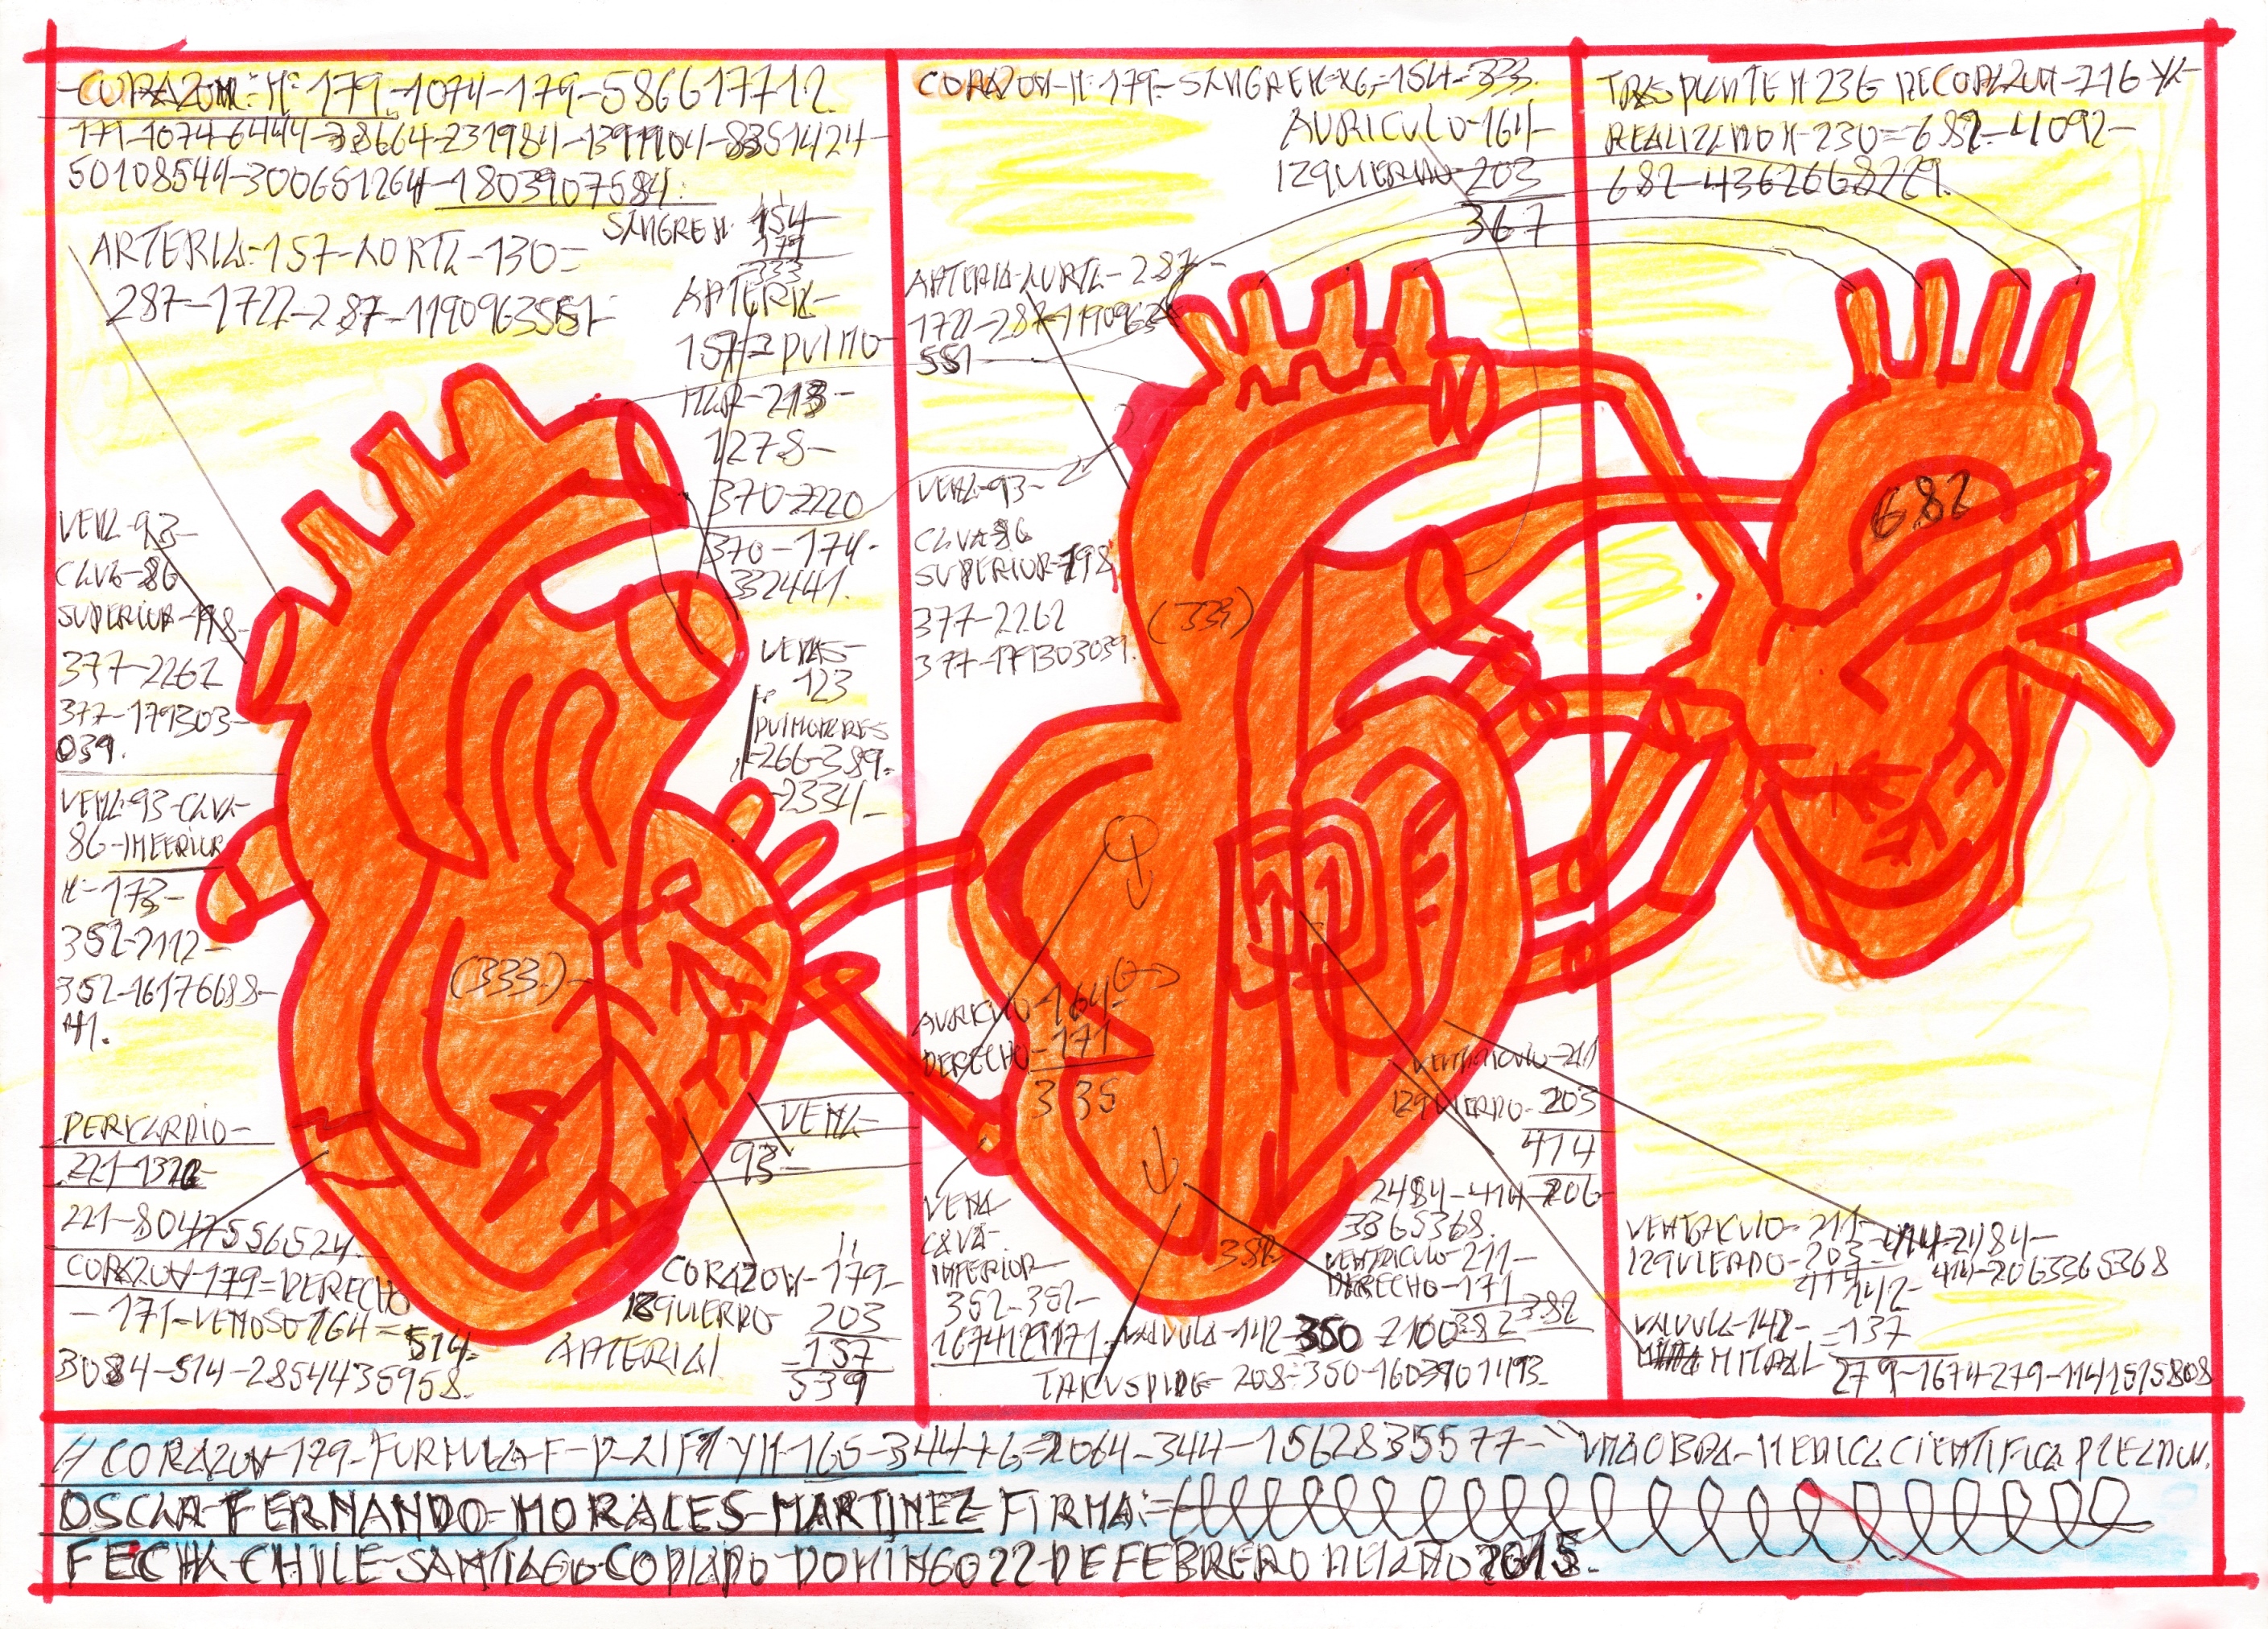 CORAZON: N: 179-1074-179-586617712
179-1074-6444-38664-231984-1391904-8351424-
50108544-300651264-1803907584.
SANGRE N. 154
179
333
ARTERIA=157-AORTA-130=
287-1722-287-1190963551-
ARTERIA-
157= PULMO-
NAR-213-
1278-
370-2220
370-174-
332441.
VENA-93-
CAVA-86
SUPERIOR-198-
377-2262
377-179303-
039.
VENAS-
123
PULMONARES
-266-389-
-2334-
VENA-93-CAVA-
86-INFERIOR
N-173-
352-2112-
352-16176688-
(333)-
PERICARDIO-
221-1326-
221-8047556524.
VENA-
93-
CORAZON-179=DERECHO
-171-VENOSO 164=514-
3084-514-2854435958-
CORAZON-179-
IZQUIERDO 203
ARTERIAL -157
539
CORAZON-N: 179-SANGRE N=X6=154=333.
AURICULO-164-
IZQUIERDO 203
367
ARTERIA-AORTA-287-
1722-287-1190963
551-
VENA-93-
CAVA-86
SUPERIOR-198
377-2262
377-179303039.
(333)
AURICULO-164-
DERECHO-171
335
VENTRICULO-211
IZQUIERDO-203
414
2484-414-206-
3365368.
VENA-
CAVA-
INFERIOR-
352-352-
1674129171-
VENTRICULO-211-
DERECHO-171
382-382
382
VALVULA-142-350 2100
TRICUSPIDE-208-350-1603901493-
TRASPLANTE N 236 DE CORAZON-216 YA-
REALIZADO N-230=682-4092-
682-4362668229.
682
VENTRICULO-211-414-2484-
IZQUIERDO-203- 414-2063365368
VALVULA-142-
MITRAL =137
279-1674-279-1141515808
// CORAZON-179-FORMULA-F-P-21F1 YN-165-344+6=2064-344-1562835577- UNA OBRA-MEDICA CIENTIFICA
OSCAR-FERNANDO-MORALES-MARTINEZ FIRMA:-
FECHA-CHILE-SANTIAGO-COPIADO-DOMINGO 22-DE FEBRERO DEL AÑO 2015-